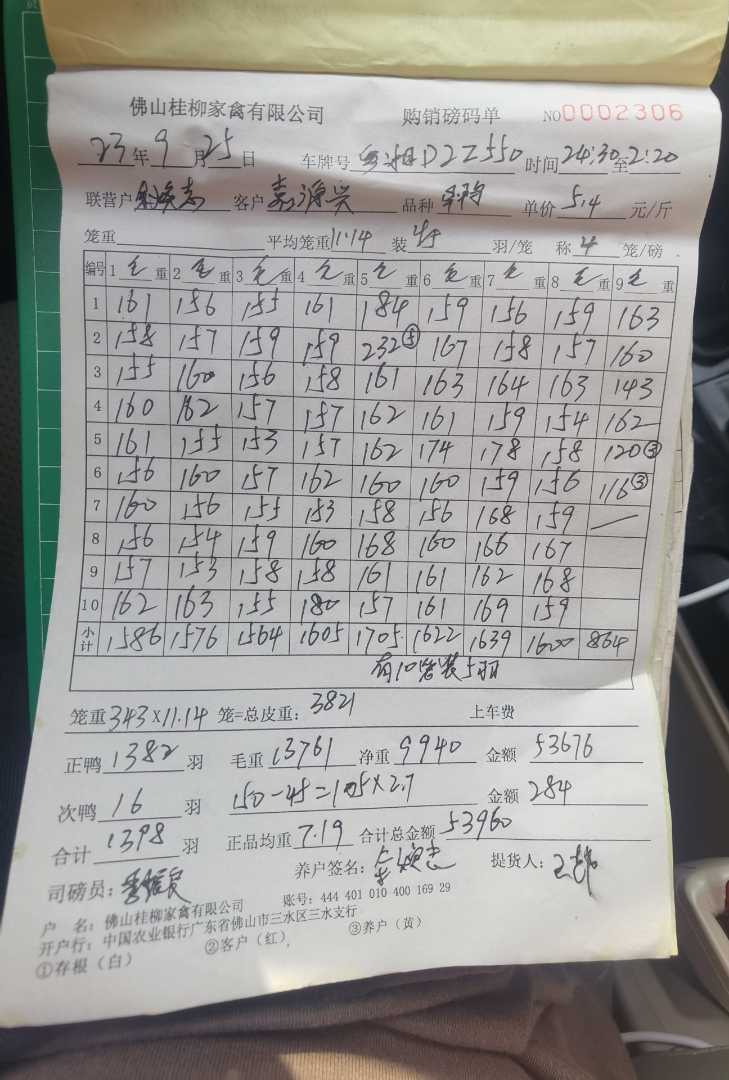 佛山桂柳家禽有限公司 购销磅码单 NO0002306
23年9月25日 车牌号 D2Z550 时间24:30至2:20
联营户 客户嘉源兴 品种 单价5.4元/斤
笼重 平均笼重11.14 装 羽/笼 称4笼/磅
编号 1毛重 2毛重 3毛重 4毛重 5毛重 6毛重 7毛重 8毛重 9毛重
1 161 156 155 161 184 159 156 159 163
2 158 157 159 159 232⑤ 167 158 157 160
3 155 160 156 158 161 163 164 163 143
4 160 162 157 157 162 161 159 154 162
5 161 155 153 157 162 174 178 158 120③
6 156 160 157 162 160 160 159 156 116③
7 160 156 155 153 158 156 168 159 —
8 156 154 159 160 168 160 166 167
9 157 153 158 158 161 161 162 168
10 162 163 155 180 157 161 169 159
小计 1586 1576 1564 1605 1705 1622 1639 1600 864
有10笼装5羽
笼重343×11.14笼=总皮重：3821 上车费
正鸭1382羽 毛重13761 净重9940 金额53676
次鸭16羽 150-45=105×2.7 金额284
合计1398羽 正品均重7.19 合计总金额53960
司磅员： 养户签名： 提货人：
户 名：佛山桂柳家禽有限公司 账号：444 401 010 400 169 29
开户行：中国农业银行广东省佛山市三水区三水支行
①存根（白） ②客户（红） ③养户（黄）